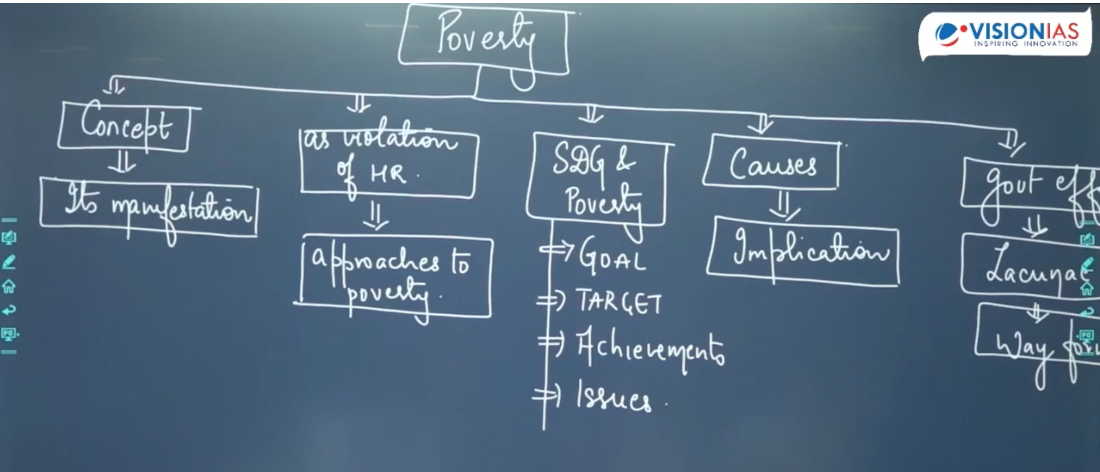 VISIONIAS
INSPIRING INNOVATION
Poverty
Concept
Its manifestation
as violation
of HR.
approaches to
poverty.
SDG &
Poverty
⇒ GOAL
⇒ TARGET
⇒ Achievements
⇒ Issues.
Causes
Implication
govt eff
Lacunae
Way forw
PC